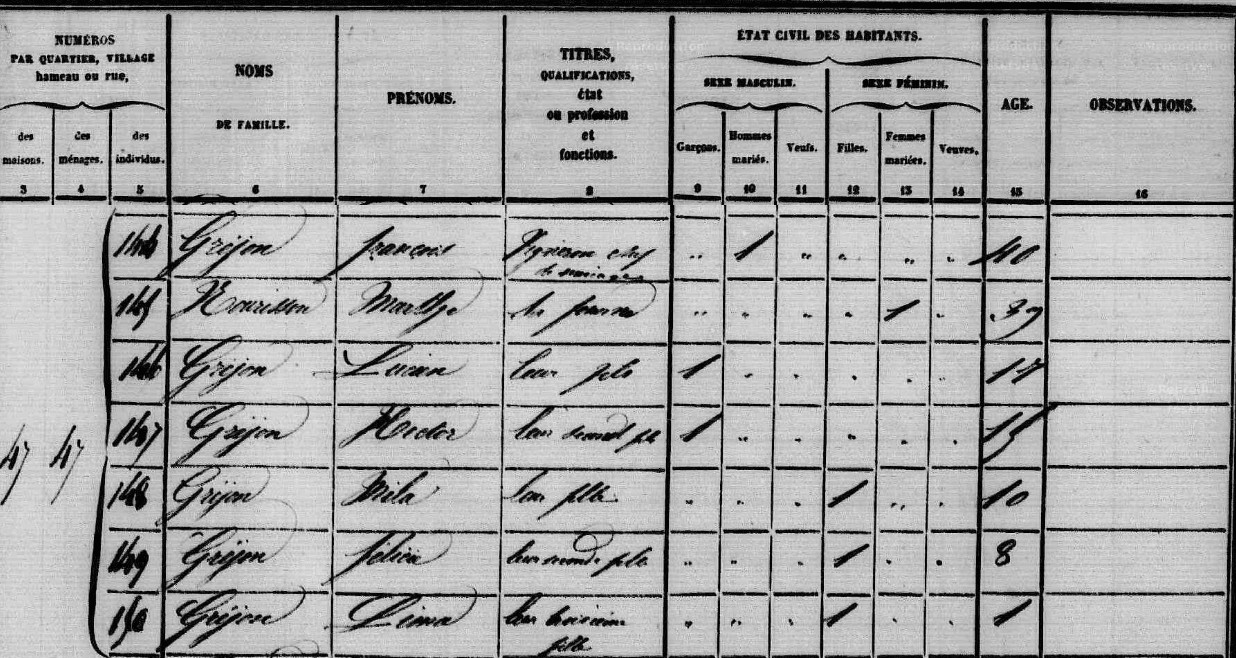 NUMÉROS
PAR QUARTIER, VILLAGE
hameau ou rue,
des maisons.
des ménages.
des individus.
NOMS
DE FAMILLE.
PRÉNOMS.
TITRES,
QUALIFICATIONS,
état
ou profession
et
fonctions.
ÉTAT CIVIL DES HABITANTS.
SEXE MASCULIN.
SEXE FÉMININ.
Garçons.
Hommes mariés.
Veufs.
Filles.
Femmes mariées.
Veuves.
AGE.
OBSERVATIONS.
3 4 5 6 7 8 9 10 11 12 13 14 15 16
47 47
Grijon françois Vigneron chef 1 40
de menage
145 Nourisson Marthe sa femme 1 39
146 Grijon Lucien leur fils 1 17
147 Grijon Hector leur second fils 1 15
148 Grijon Mila leur fille 1 10
149 Grijon félicia leur seconde fille 1 8
150 Grijon leur troisieme 1 1
fille